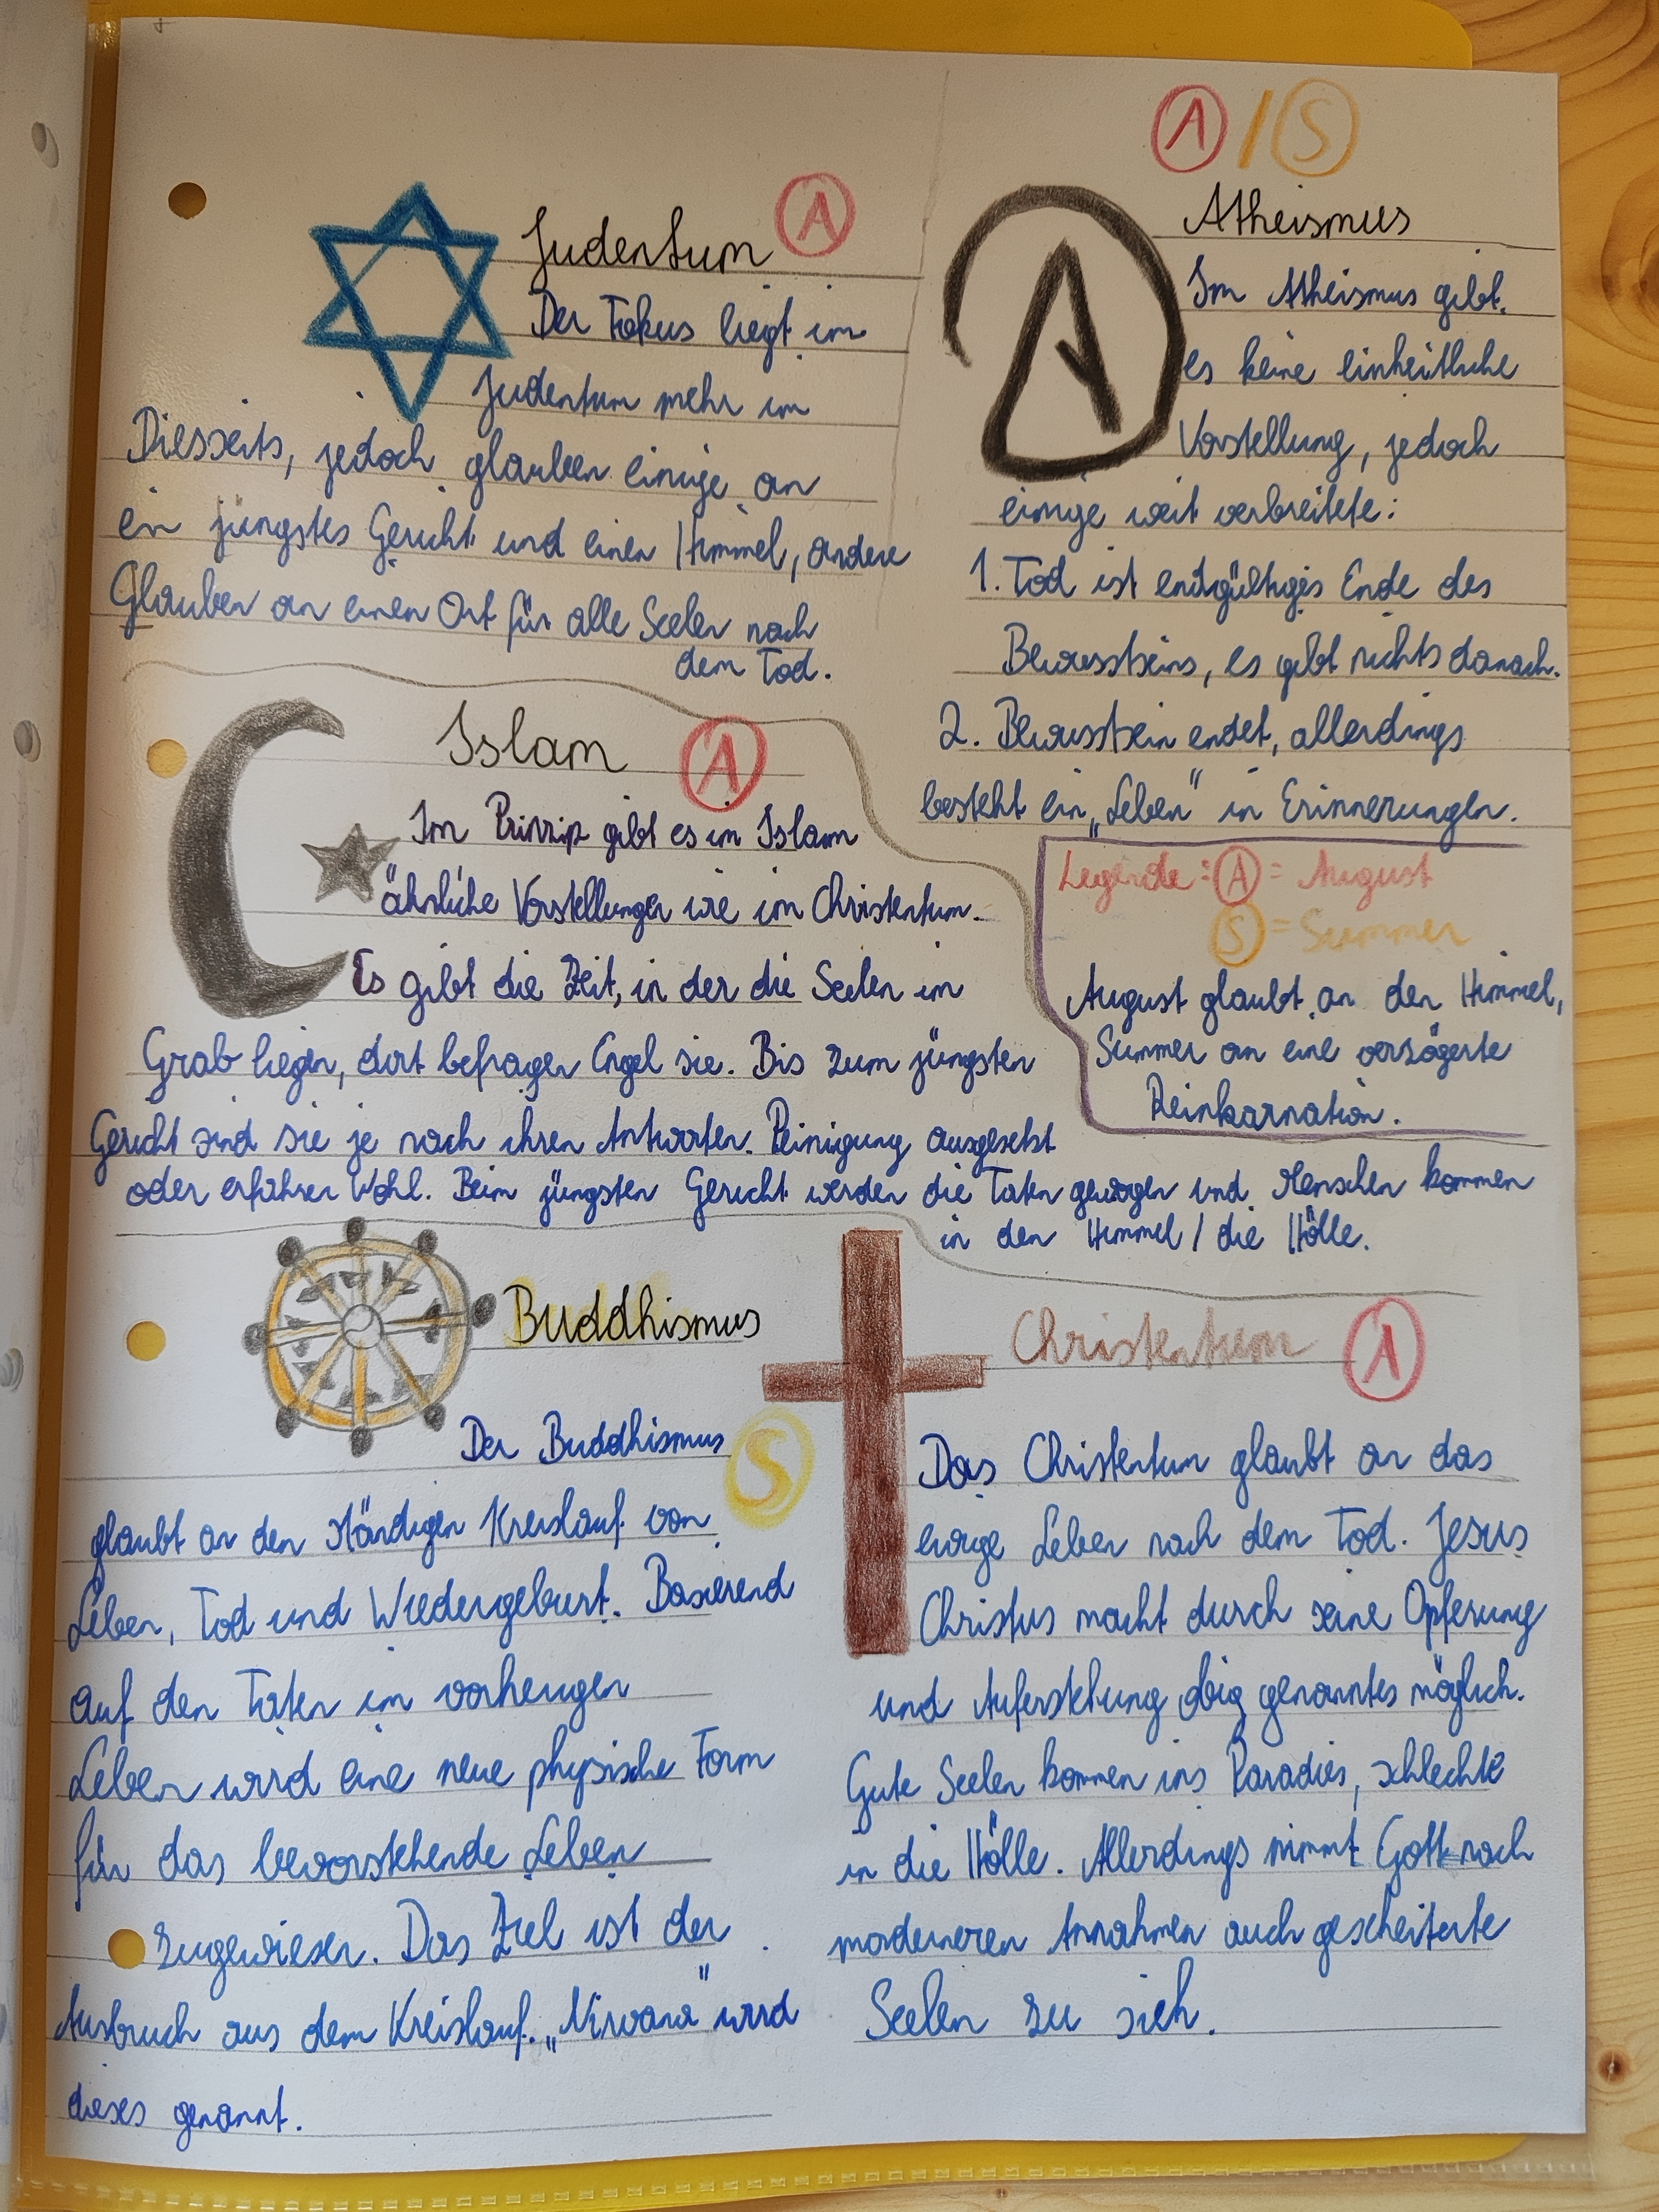 Judentum A
Der Fokus liegt im
Judentum mehr im
Diesseits, jedoch glauben einige an
ein jüngstes Gericht und einen Himmel, andere
Glauben an einen Ort für alle Seelen nach
dem Tod.
A / S
A
Atheismus
Im Atheismus gibt
es keine einheitliche
Vorstellung, jedoch
einige weit verbreitete:
1. Tod ist endgültiges Ende des
Bewusstseins, es gibt nichts danach.
2. Bewusstsein endet, allerdings
besteht ein „Leben" in Erinnerungen.
Legende: A = August
S = Summer
August glaubt an den Himmel,
Summer an eine verzögerte
Reinkarnation.
Islam A
Im Prinzip gibt es im Islam
ähnliche Vorstellungen wie im Christentum.
Es gibt die Zeit, in der die Seelen im
Grab liegen, dort befragen Engel sie. Bis zum jüngsten
Gericht sind sie je nach ihren Antworten Peinigung ausgesetzt
oder erfahren Wohl. Beim jüngsten Gericht werden die Taten gewogen und Menschen kommen
in den Himmel / die Hölle.
Buddhismus
S
Der Buddhismus
glaubt an den ständigen Kreislauf von
Leben, Tod und Wiedergeburt. Basierend
auf den Taten im vorherigen
Leben wird eine neue physische Form
für das bevorstehende Leben
zugewiesen. Das Ziel ist der
Ausbruch aus dem Kreislauf. „Nirvana" wird
dieses genannt.
Christentum A
Das Christentum glaubt an das
ewige Leben nach dem Tod. Jesus
Christus macht durch seine Opferung
und Auferstehung obig genanntes möglich.
Gute Seelen kommen ins Paradies, schlechte
in die Hölle. Allerdings nimmt Gott nach
moderneren Annahmen auch gescheiterte
Seelen zu sich.